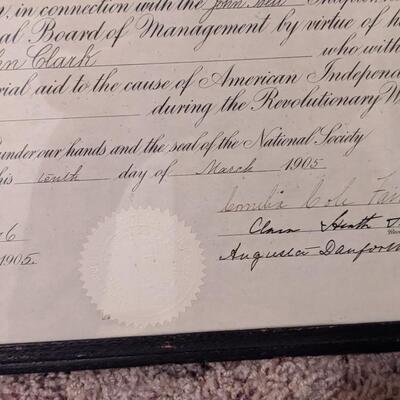 n, in connection with the John
al Board of Management by virtue of h
hn Clark who with
rial aid to the cause of American Independ
during the Revolutionary W
under our hands and the seal of the National Society
his tenth day of March 1905
Cornelia Cole Fair
6 Clara Heath
1905. Augusta Danforth